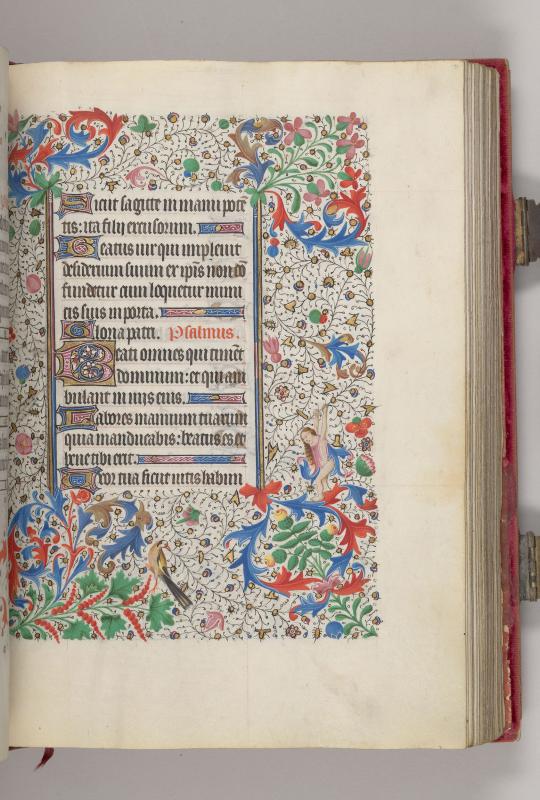 Sicut sagitte in manu poten
tis: ita filij excussorum.
Beatus vir qui implevit
desiderium suum ex ip̄is non cō
fundetur cum loquetur inimi
cis suis in porta.
Gloria patri. Psalmus.
Beati omnes qui timēt
dominum: et qui am
bulant in viis eius.
Labores manuum tuarum
quia manducabis: beatus es et
bene tibi erit.
Uxor tua sicut vitis habun